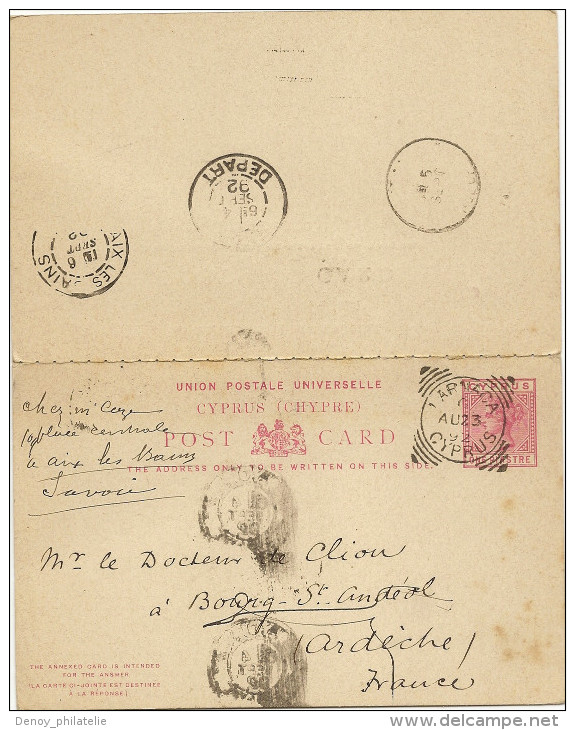 DEPART
SEPT
92
AIX LES BAINS
6
SEPT
92
UNION POSTALE UNIVERSELLE
CYPRUS (CHYPRE)
POST CARD
THE ADDRESS ONLY TO BE WRITTEN ON THIS SIDE.
LARNACA
AU 23
92
CYPRUS
CYPRUS
ONE PIASTRE
chez mr
place centrale
a aix les Bains
Savoie
Mr le Docteur de Clion
à Bourg-St Andéol
(Ardèche)
France
THE ANNEXED CARD IS INTENDED
FOR THE ANSWER
(LA CARTE CI-JOINTE EST DESTINÉE
À LA RÉPONSE)
Deny_philatelie
www.delcampe.net